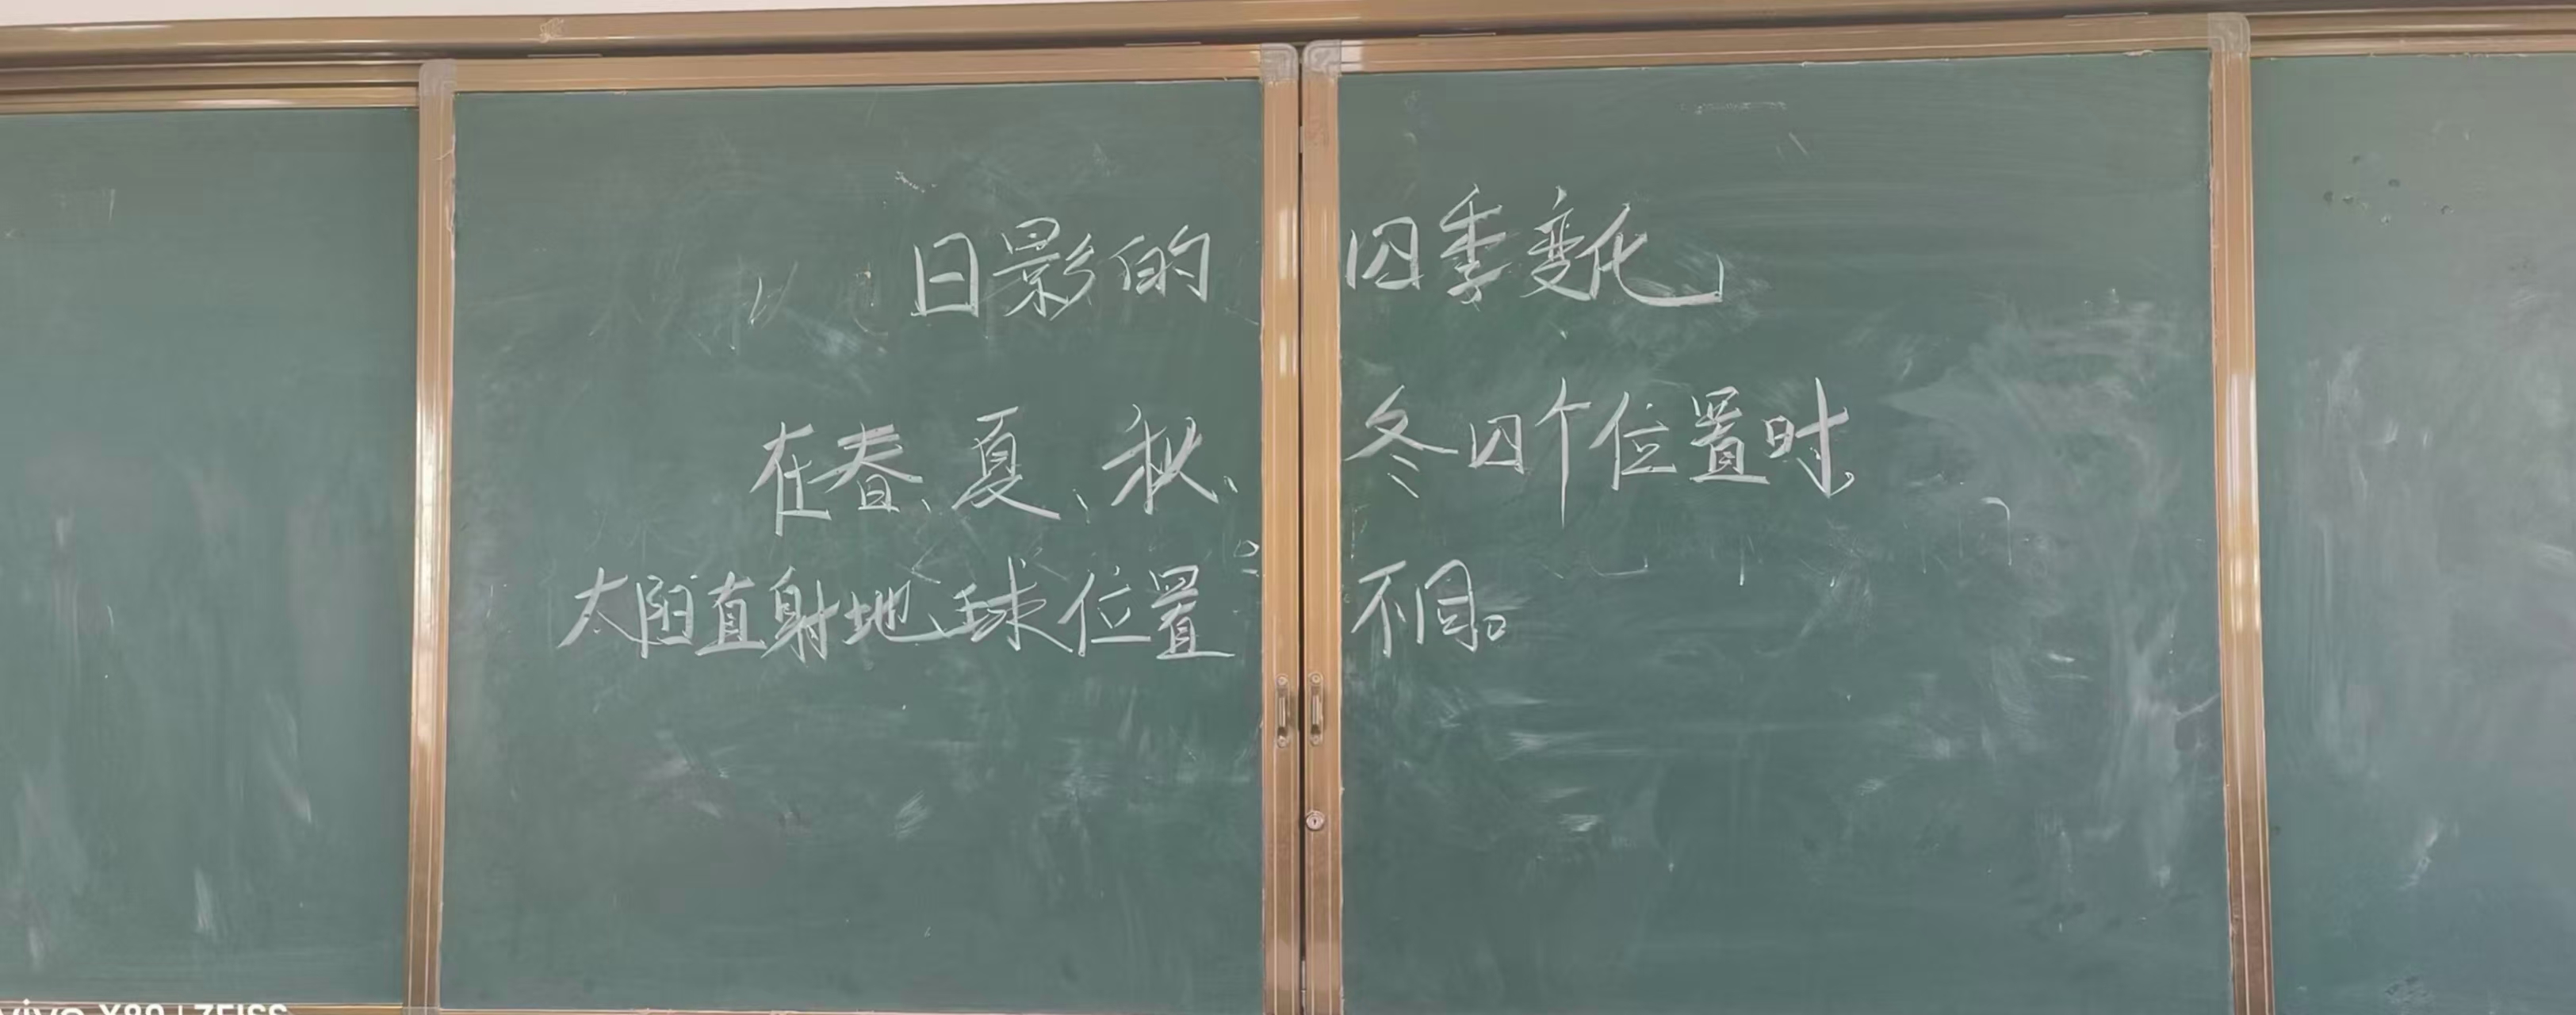 日影的四季变化
在春、夏、秋、冬四个位置时,
太阳直射地球位置不同。
vivo X80 | ZEISS